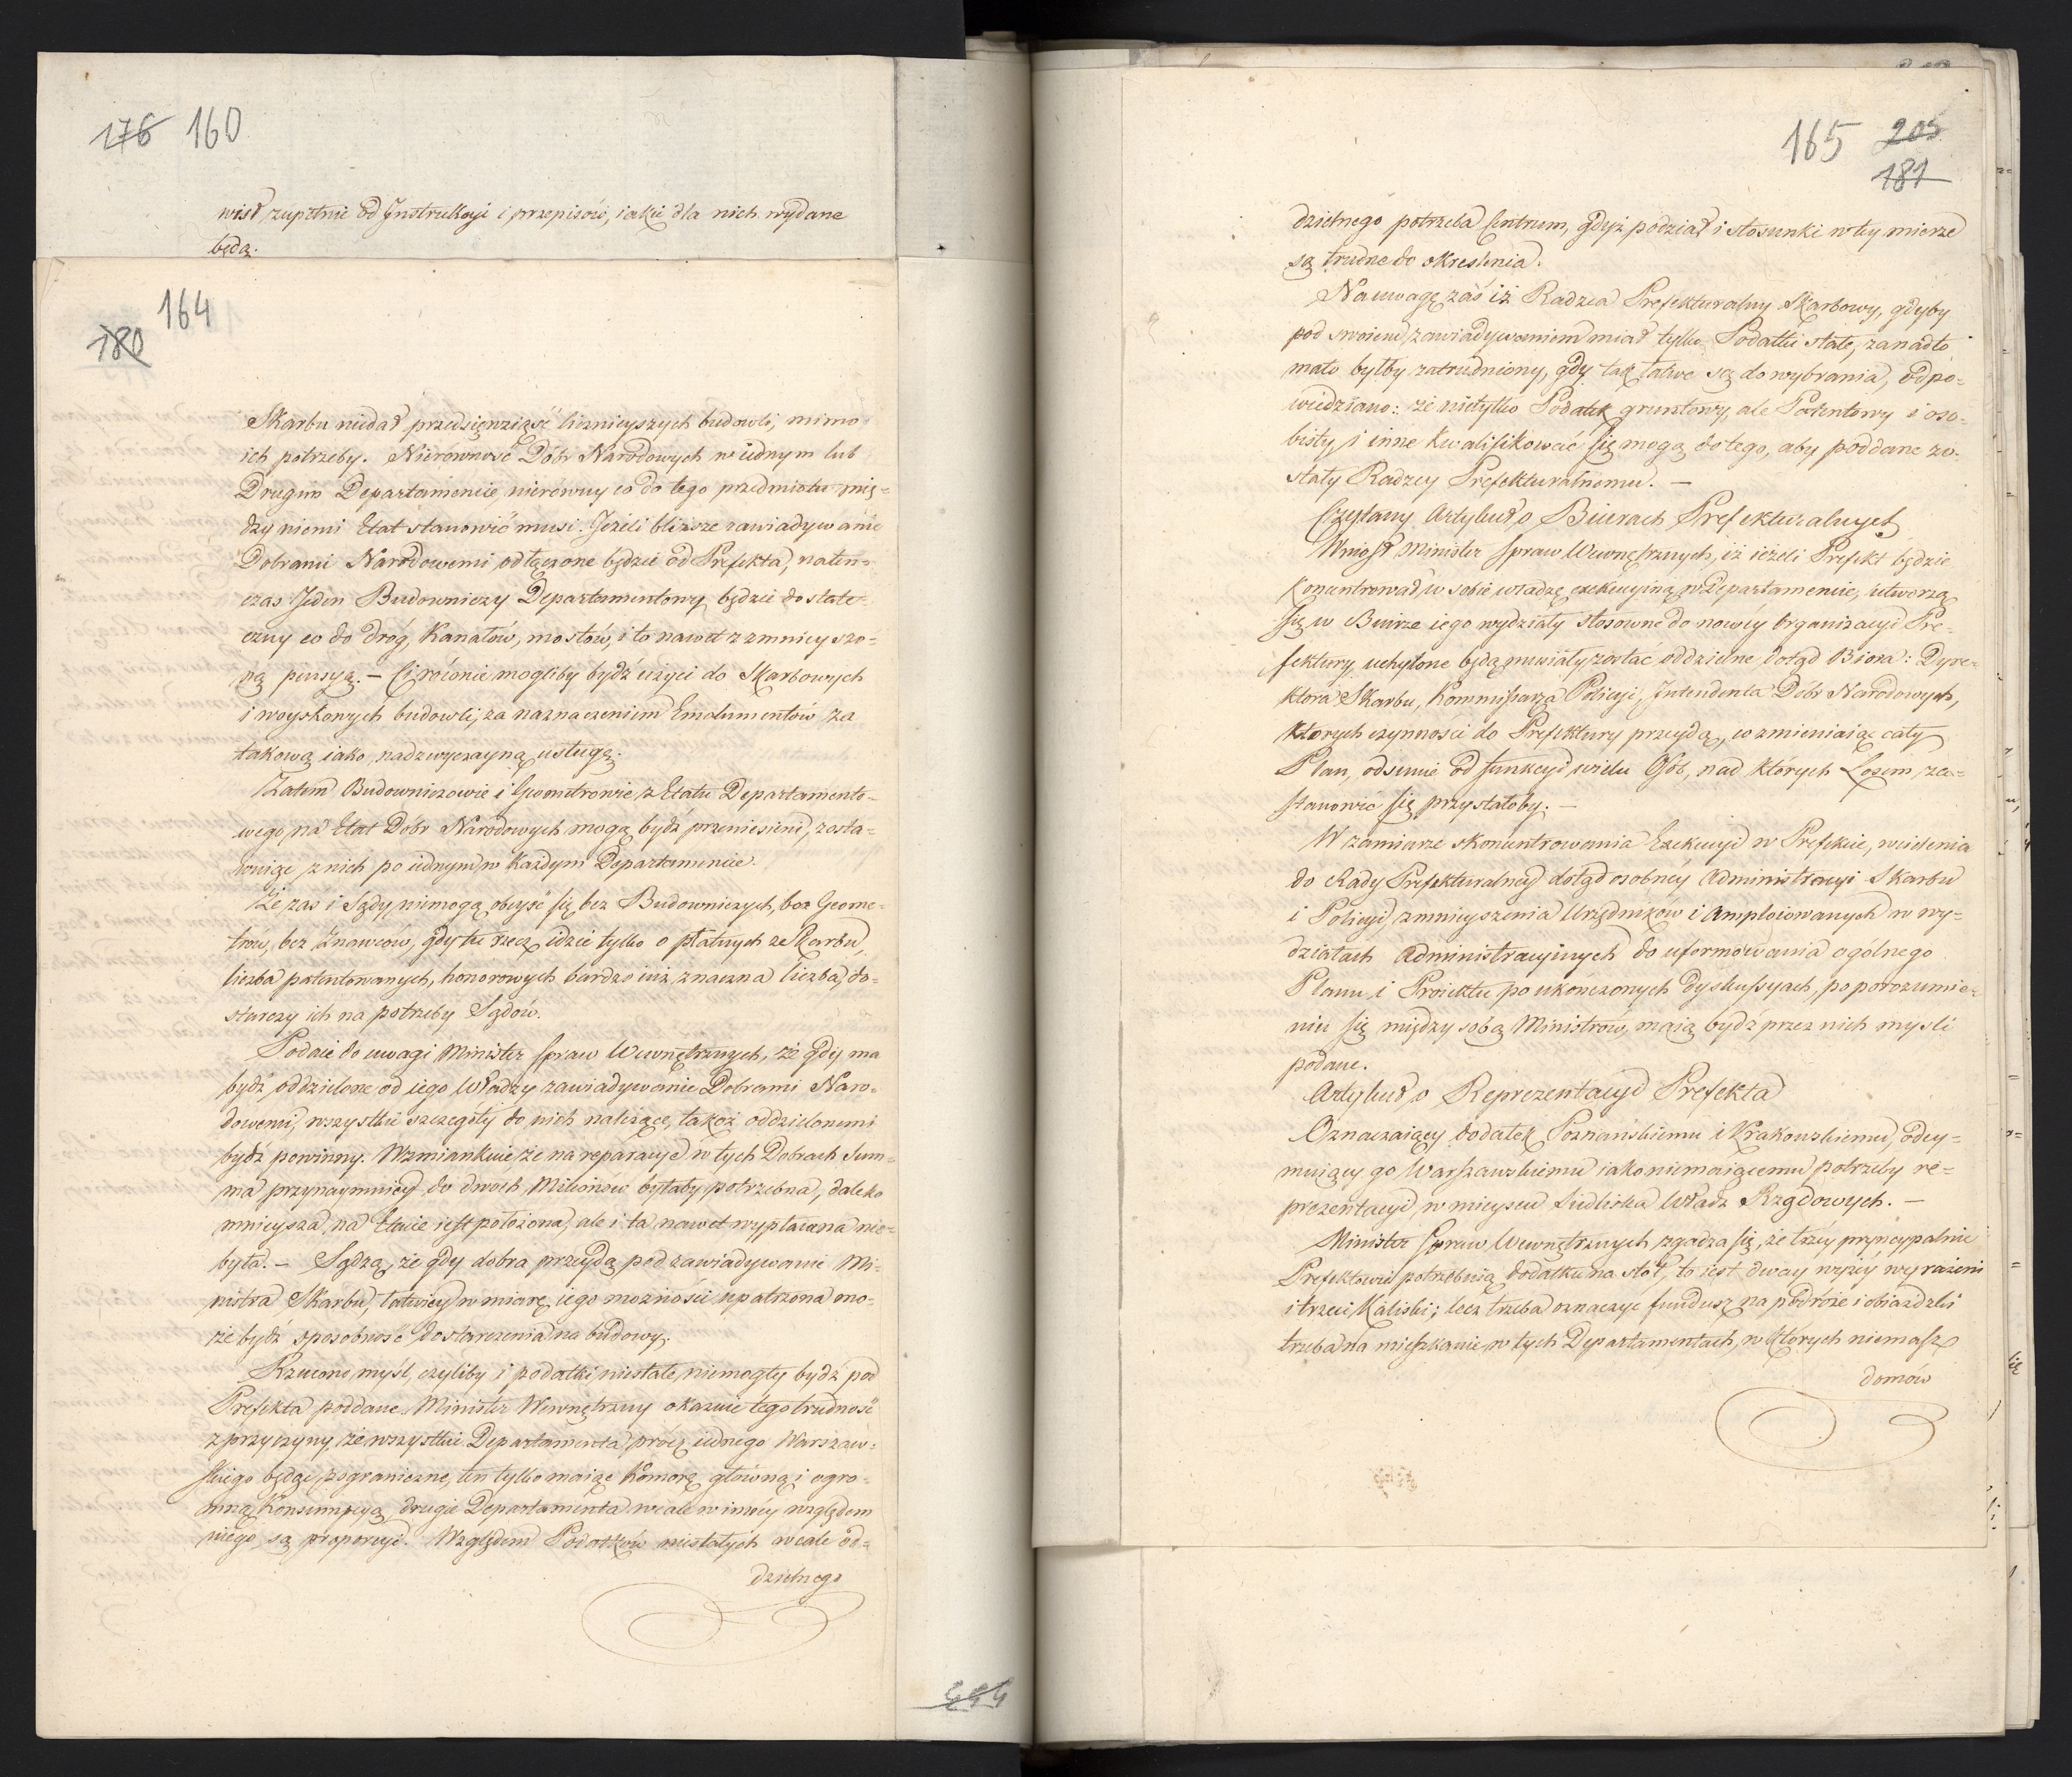 176 160
wisł zupełnie od Instrukcyi i przepisów, iakie dla nich wydane
będą.
164
180
Skarbu niedał przedsięwziąść licznieyszych budowli, mimo
ich potrzeby. Nierówność Dóbr Narodowych w iednym lub
Drugim Departamencie, nierówny co do tego przedmiotu mię-
dzy niemi Etat stanowić musi. Jeżeli bliższe zawiadywanie
Dobrami Narodowemi odłączone będzie od Prefekta, naten-
czas Jeden Budowniczy Departamentowy będzie dostate-
czny co do dróg, Kanałów, mostów, i to nawet z zmnieyszo-
ną pensyą. — Ci równie mogliby bydź użyci do Skarbowych
i woyskowych budowli, za naznaczeniem Emolumentów za
takową iako nadzwyczayną usługę.
Zatem Budowniczowie i Geometrowie z Etatu Departamento-
wego na Etat Dóbr Narodowych mogą bydź przeniesieni, zosta-
wiąc z nich po iednym w każdym Departamencie.
Że zaś i Sądy niemogą obeyść się bez Budowniczych, bez Geome-
trów, bez Znawców, gdy tu rzecz idzie tylko o płatnych ze Skarbu,
liczba patentowanych, honorowych bardzo iuż znaczna liczba, do-
starczy ich na potrzeby Sądów.
Podaie do uwagi Minister Spraw Wewnętrznych, że gdy ma
bydź oddzielone od iego Władzy zawiadywanie Dobrami Naro-
dowemi, wszystkie szczegóły do nich należące, takoż oddzielonemi
bydź powinny. Wzmiankuie, że na reparacye w tych Dobrach Sum-
ma przynaymniey do dwoch Milionów byłaby potrzebna, daleko
mnieysza na Etacie iest położona, ale i ta nawet wypłacana nie-
była. — Sądzą, że gdy dobra przeydą pod zawiadywanie Mi-
nistra Skarbu, łatwiey w miarę iego możności upatrzona mo-
że bydź sposobność dostarczenia na budowy.
Rzucono myśl, czyliby i podatki niestałe niemogły bydź pod
Prefekta poddane. Minister Wewnętrzny okazuie tego trudność
z przyczyny że wszystkie Departamenta prócz iednego Warszaw-
skiego będąc pograniczne, ten tylko maiąc Komorę główną i ogro-
mną Konsumpcyą, drugie Departamenta wcale w innéy względem
niego są proporcyi. Względem Podatków niestałych wcale od-
dzielnego
444
165 205
181
dzielnego potrzeba Centrum, gdyż podział i stosunki w tey mierze
są trudne do okreslenia.
Na uwagę zaś iż Radzca Prefekturalny Skarbowy, gdyby
pod swoiem zawiadywaniem miał tylko Podatki stałe, zanadto
mało byłby zatrudniony, gdy tak łatwe są do wybrania, odpo-
wiedziano: że nietylko Podatek gruntowy, ale Patentowy i oso-
bisty, i inne kwalifikować się mogą do tego, aby poddane zo-
stały Radzcy Prefekturalnemu. —
Czytany Artykuł o Biurach Prefekturalnych
Wniosł Minister Spraw Wewnętrznych, iż ieżeli Prefekt będzie
koncentrował w sobie władzę exekucyiną w Departamencie, utworzą
się w Biurze iego wydziały stosowne do nowéy Organizacyi Pre-
fektury, uchylone będą musiały zostać oddzielne dotąd Biora: Dyre-
ktora Skarbu, Kommissarza Policyi, Intendenta Dóbr Narodowych,
których czynności do Prefektury przeydą, co zmieniaiąc cały
Plan, odsunie od funkcyi wielu Osób, nad których Losem za-
stanowić się przystałoby. —
W zamiarze skoncentrowania Exekucyi w Prefekcie, wcielenia
do Rady Prefekturalney dotąd osobnéy Administracyi Skarbu
i Policyi, zmnieyszenia Urzędników i Amploiowanych w wy-
działach Administracyinych do uformowania ogólnego
Planu i Proiektu po ukończonych dyskussyach, po porozumie-
niu się między sobą Ministrów, maią bydź przez nich mysli
podane.
Artykuł o Reprezentacyi Prefekta
Oznaczaiący dodatek Poznańskiemu i Krakowskiemu, odey-
muiący go Warszawskiemu iako niemaiącemu potrzeby re-
prezentacyi, w mieyscu Siedliska Władz Rządowych. —
Minister Spraw Wewnętrznych zgadza się, że trzey pryncypalnie
Prefektowie potrzebuią dodatku na stół, to iest dwaj wyżéy wyrażeni
i trzeci Kaliski; lecz trzeba oznaczyć fundusz na podróże i obiazdzki
trzeba na mieszkanie w tych Departamentach, w których niemasz
domów